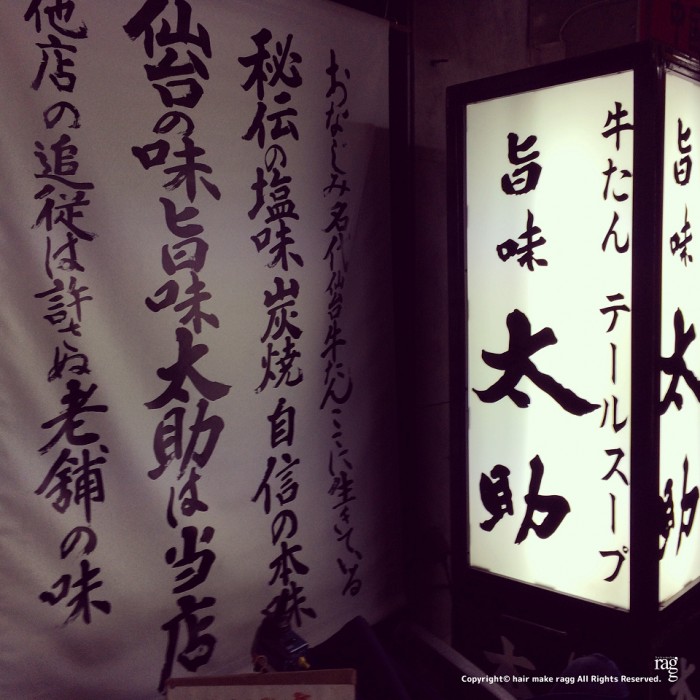 おなじみ名代仙台牛たんここに生きている
秘伝の塩味炭焼自信の本味
仙台の味旨味太助は当店
他店の追従は許さぬ老舗の味
牛たん テールスープ
旨味太助
旨味太助
rag
Copyright© hair make ragg All Rights Reserved.